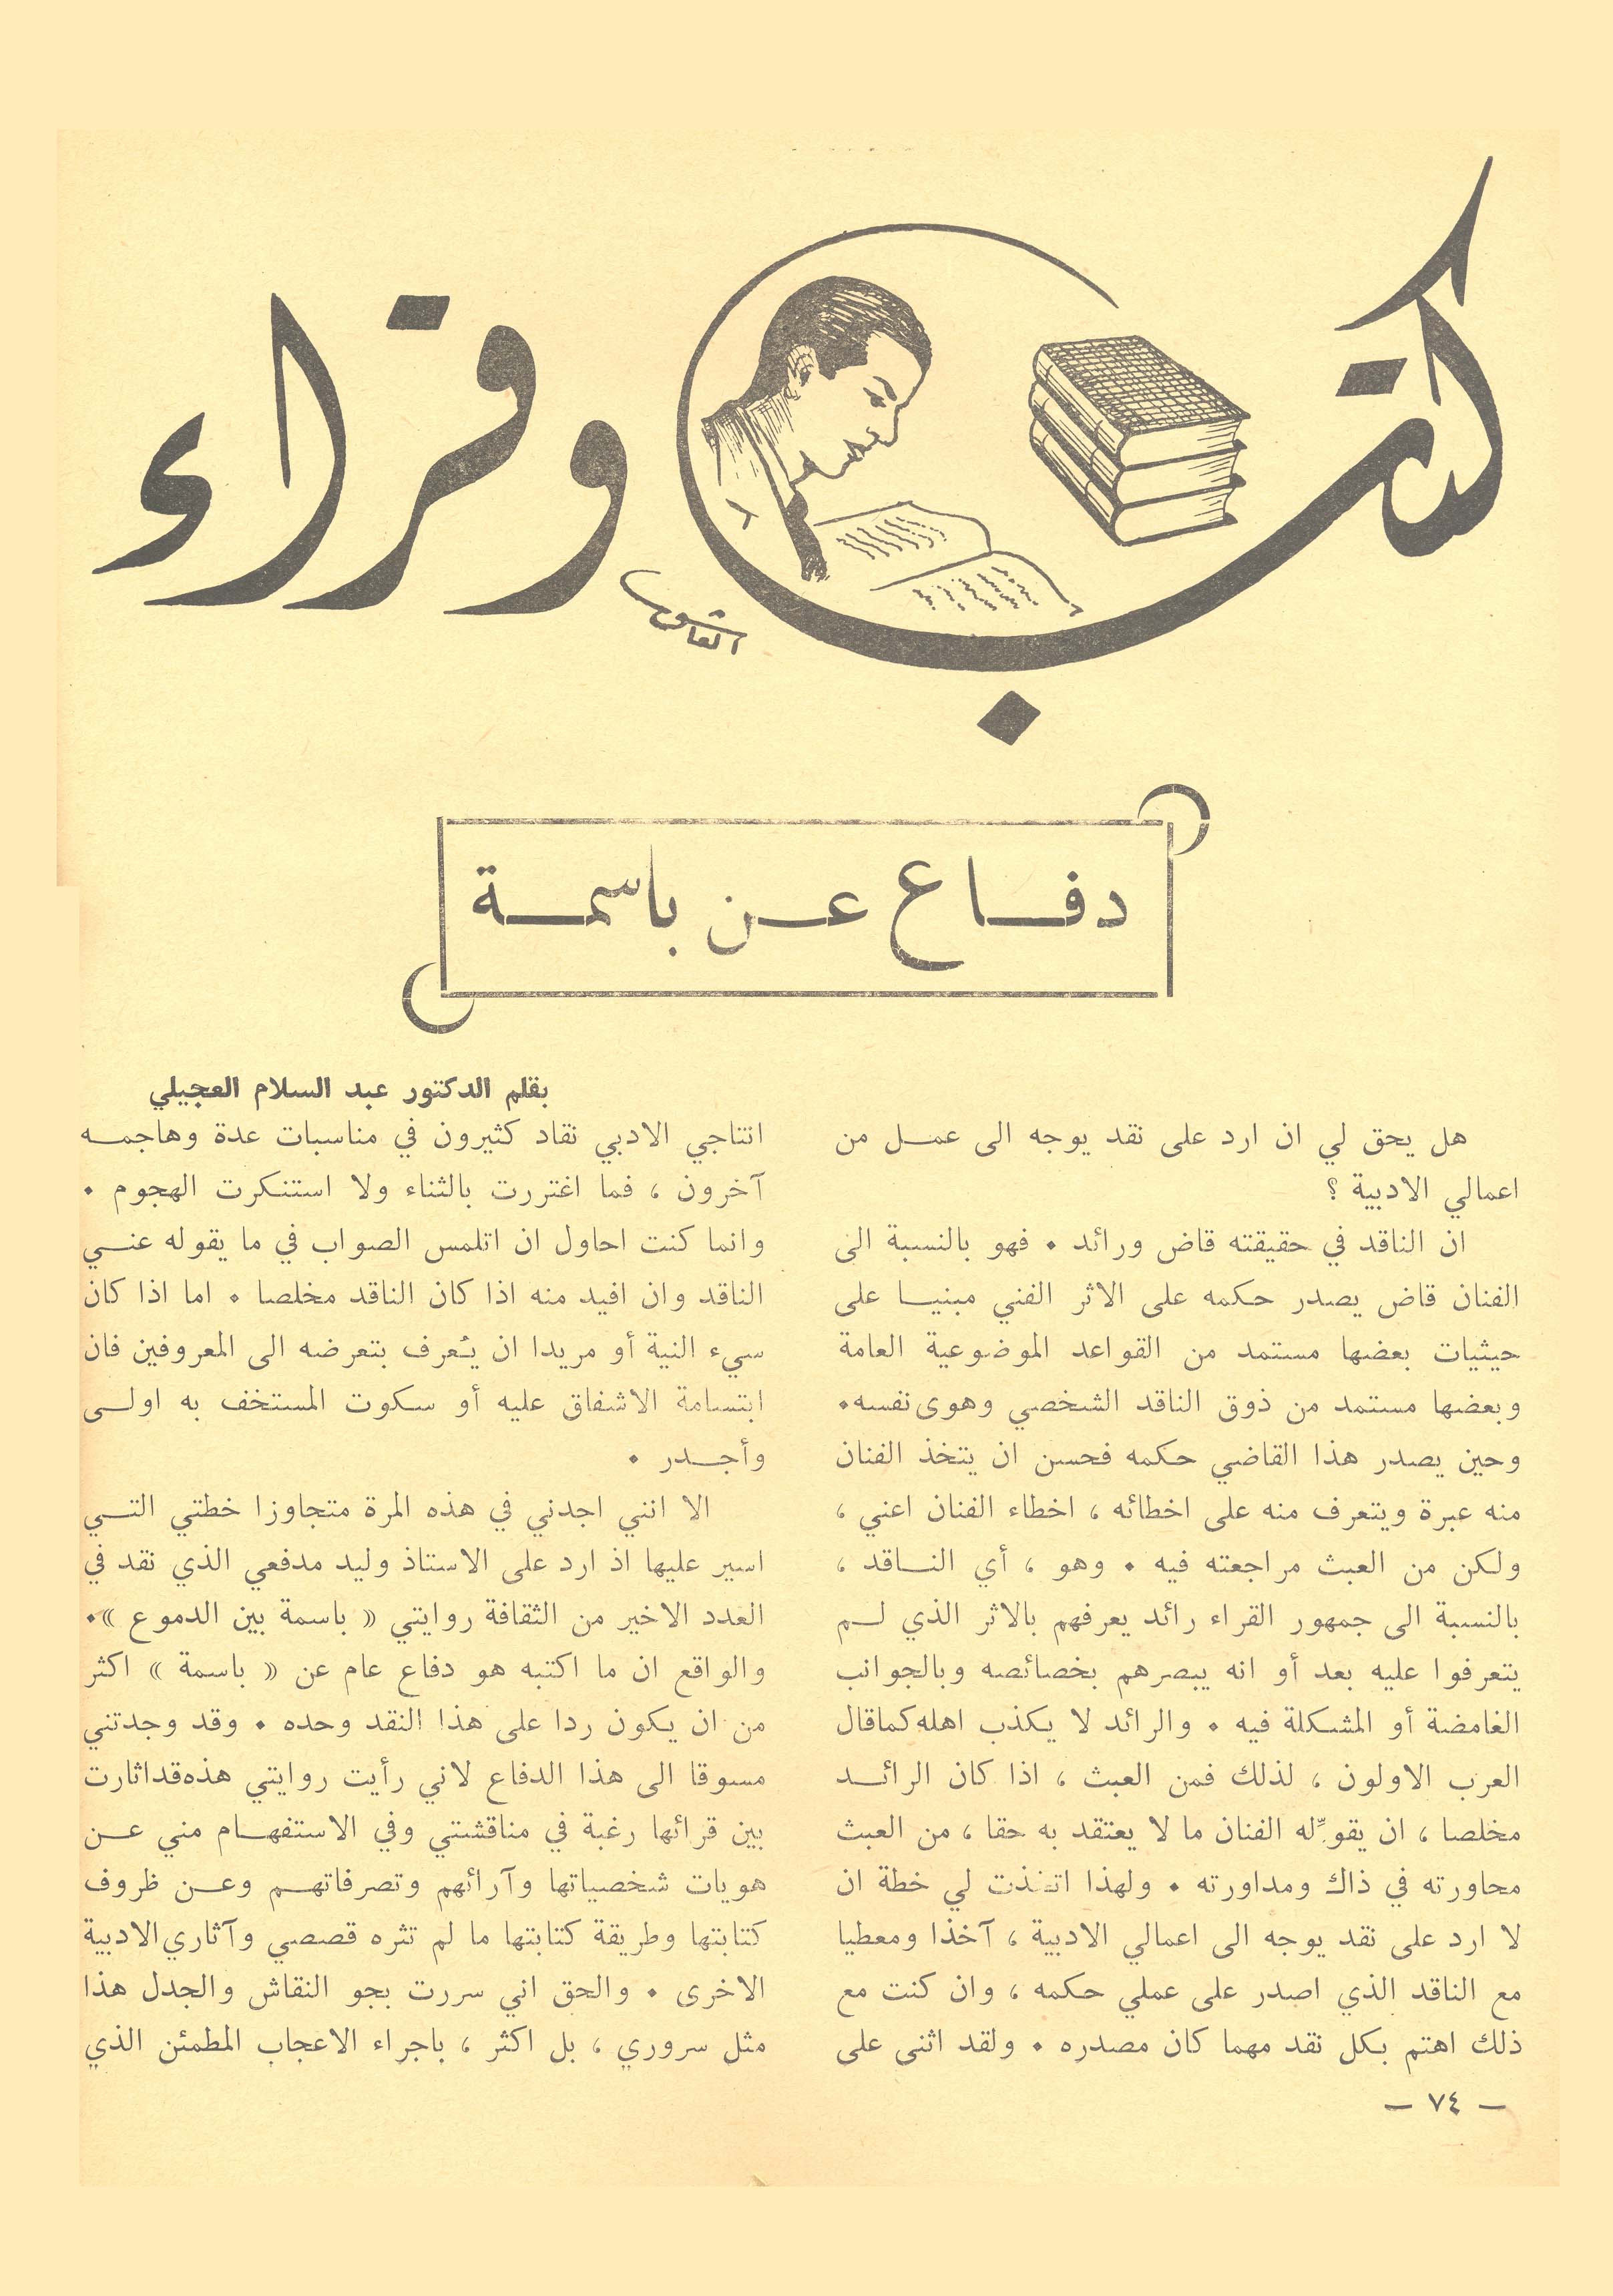 كتب وقراء
العاشور
دفاع عن باسمة
بقلم الدكتور عبد السلام العجيلي
هل يحق لي ان ارد على نقد يوجه الى عمل من
اعمالي الادبية ؟
ان الناقد في حقيقته قاض ورائد . فهو بالنسبة الى
الفنان قاض يصدر حكمه على الاثر الفني مبنيا على
حيثيات بعضها مستمد من القواعد الموضوعية العامة
وبعضها مستمد من ذوق الناقد الشخصي وهوى نفسه.
وحين يصدر هذا القاضي حكمه فحسن ان يتخذ الفنان
منه عبرة ويتعرف منه على اخطائه ، اخطاء الفنان اعني ،
ولكن من العبث مراجعته فيه . وهو ، أي الناقد ،
بالنسبة الى جمهور القراء رائد يعرفهم بالاثر الذي لم
يتعرفوا عليه بعد أو انه يبصرهم بخصائصه وبالجوانب
الغامضة أو المشكلة فيه . والرائد لا يكذب اهله كماقال
العرب الاولون ، لذلك فمن العبث ، اذا كان الرائد
مخلصا ، ان يقوّله الفنان ما لا يعتقد به حقا ، من العبث
محاورته في ذاك ومداورته . ولهذا اتخذت لي خطة ان
لا ارد على نقد يوجه الى اعمالي الادبية ، آخذا ومعطيا
مع الناقد الذي اصدر على عملي حكمه ، وان كنت مع
ذلك اهتم بكل نقد مهما كان مصدره . ولقد اثنى على
انتاجي الادبي نقاد كثيرون في مناسبات عدة وهاجمه
آخرون ، فما اغتررت بالثناء ولا استنكرت الهجوم .
وانما كنت احاول ان اتلمس الصواب في ما يقوله عني
الناقد وان افيد منه اذا كان الناقد مخلصا . اما اذا كان
سيء النية أو مريدا ان يُعرف بتعرضه الى المعروفين فان
ابتسامة الاشفاق عليه أو سكوت المستخف به اولى
وأجدر .
الا انني اجدني في هذه المرة متجاوزا خطتي التي
اسير عليها اذ ارد على الاستاذ وليد مدفعي الذي نقد في
العدد الاخير من الثقافة روايتي « باسمة بين الدموع ».
والواقع ان ما اكتبه هو دفاع عام عن « باسمة » اكثر
من ان يكون ردا على هذا النقد وحده . وقد وجدتني
مسوقا الى هذا الدفاع لاني رأيت روايتي هذه قد اثارت
بين قرائها رغبة في مناقشتي وفي الاستفهام مني عن
هويات شخصياتها وآرائهم وتصرفاتهم وعن ظروف
كتابتها وطريقة كتابتها ما لم تثره قصصي وآثاري الادبية
الاخرى . والحق اني سررت بجو النقاش والجدل هذا
مثل سروري ، بل اكثر ، باجراء الاعجاب المطمئن الذي
— ٧٤ —